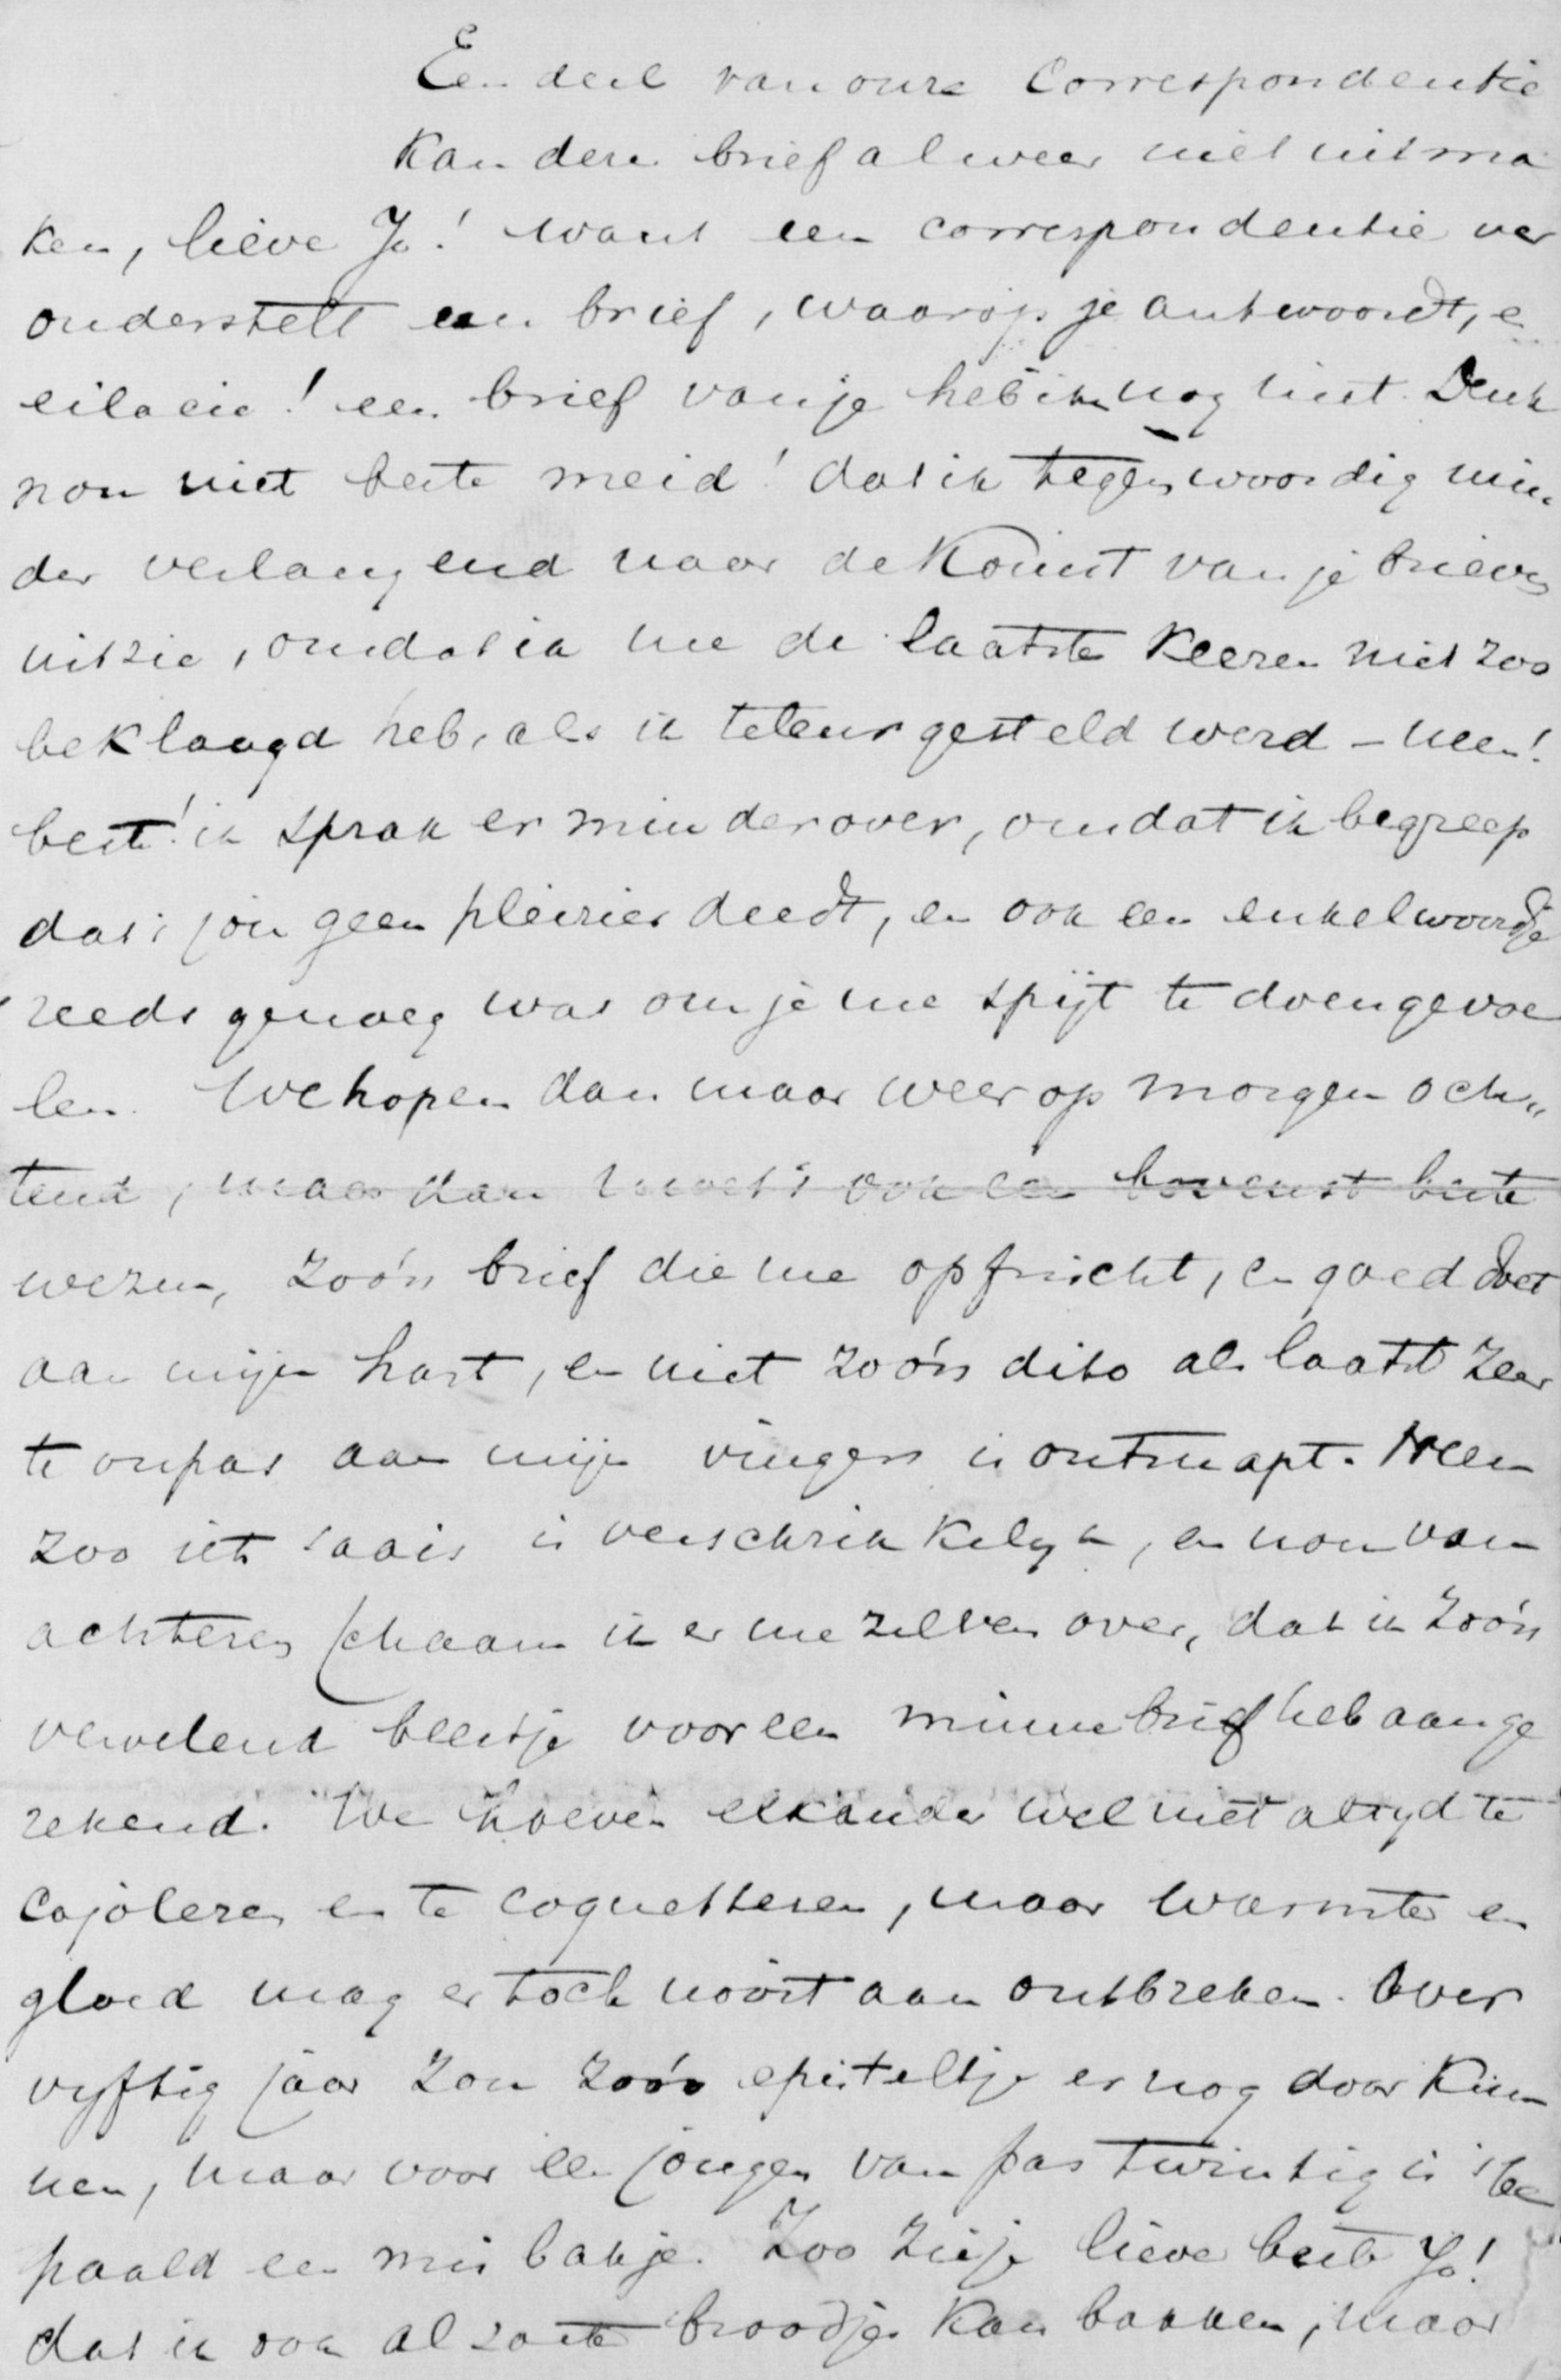 Een deel van onze Correspondentie
Kan deze brief al weer niet uitma
ken, lieve Jo! want een correspondentie ver
onderstelt een brief, waarop je antwoordt, en
eilacie! een brief van je heb ik nog niet. Denk
nou niet beste meid! dat ik tegenwoordig min„
der verlangend naar de Komst van je brieven
uitzie, omdat ik me de laatste Keeren niet zoo
beklaagd heb, als ik teleurgesteld werd – neen!
beste! ik sprak er minder over, omdat ik begreep
dat 't jou geen pleizier deedt, en ook een enkel woordje
reeds genoeg was om je me spijt te doen gevoe
len. We hopen dan maar weer op morgen och„
tend, maar dan moet 't ook een bovenst beste
wezen, zoo'n brief die me opfrischt, en goed doet
aan mijn hart, en niet zoo'n dito als laatst zeer
te onpas aan mijn vingers is ontsnapt. Neen
zoo iets saais is verschrikkelyk, en nou van
achteren schaam ik er me zelven over, dat ik zoo'n
vervelend beestje voor een minnebrief heb aange
rekend. We hoeven elkander wel niet altyd te
cajoleren en te coquetteren, maar warmte en
gloed mag er toch nooit aan ontbreken. Over
vyftig jaar zou zoo'n episteltje er nog door Kun
nen, maar voor een jongen van pas twintig is 't be
paald een misbakje. Zoo zie je lieve beste Jo!
dat ik ook al zoete broodjes kan bakken, maar